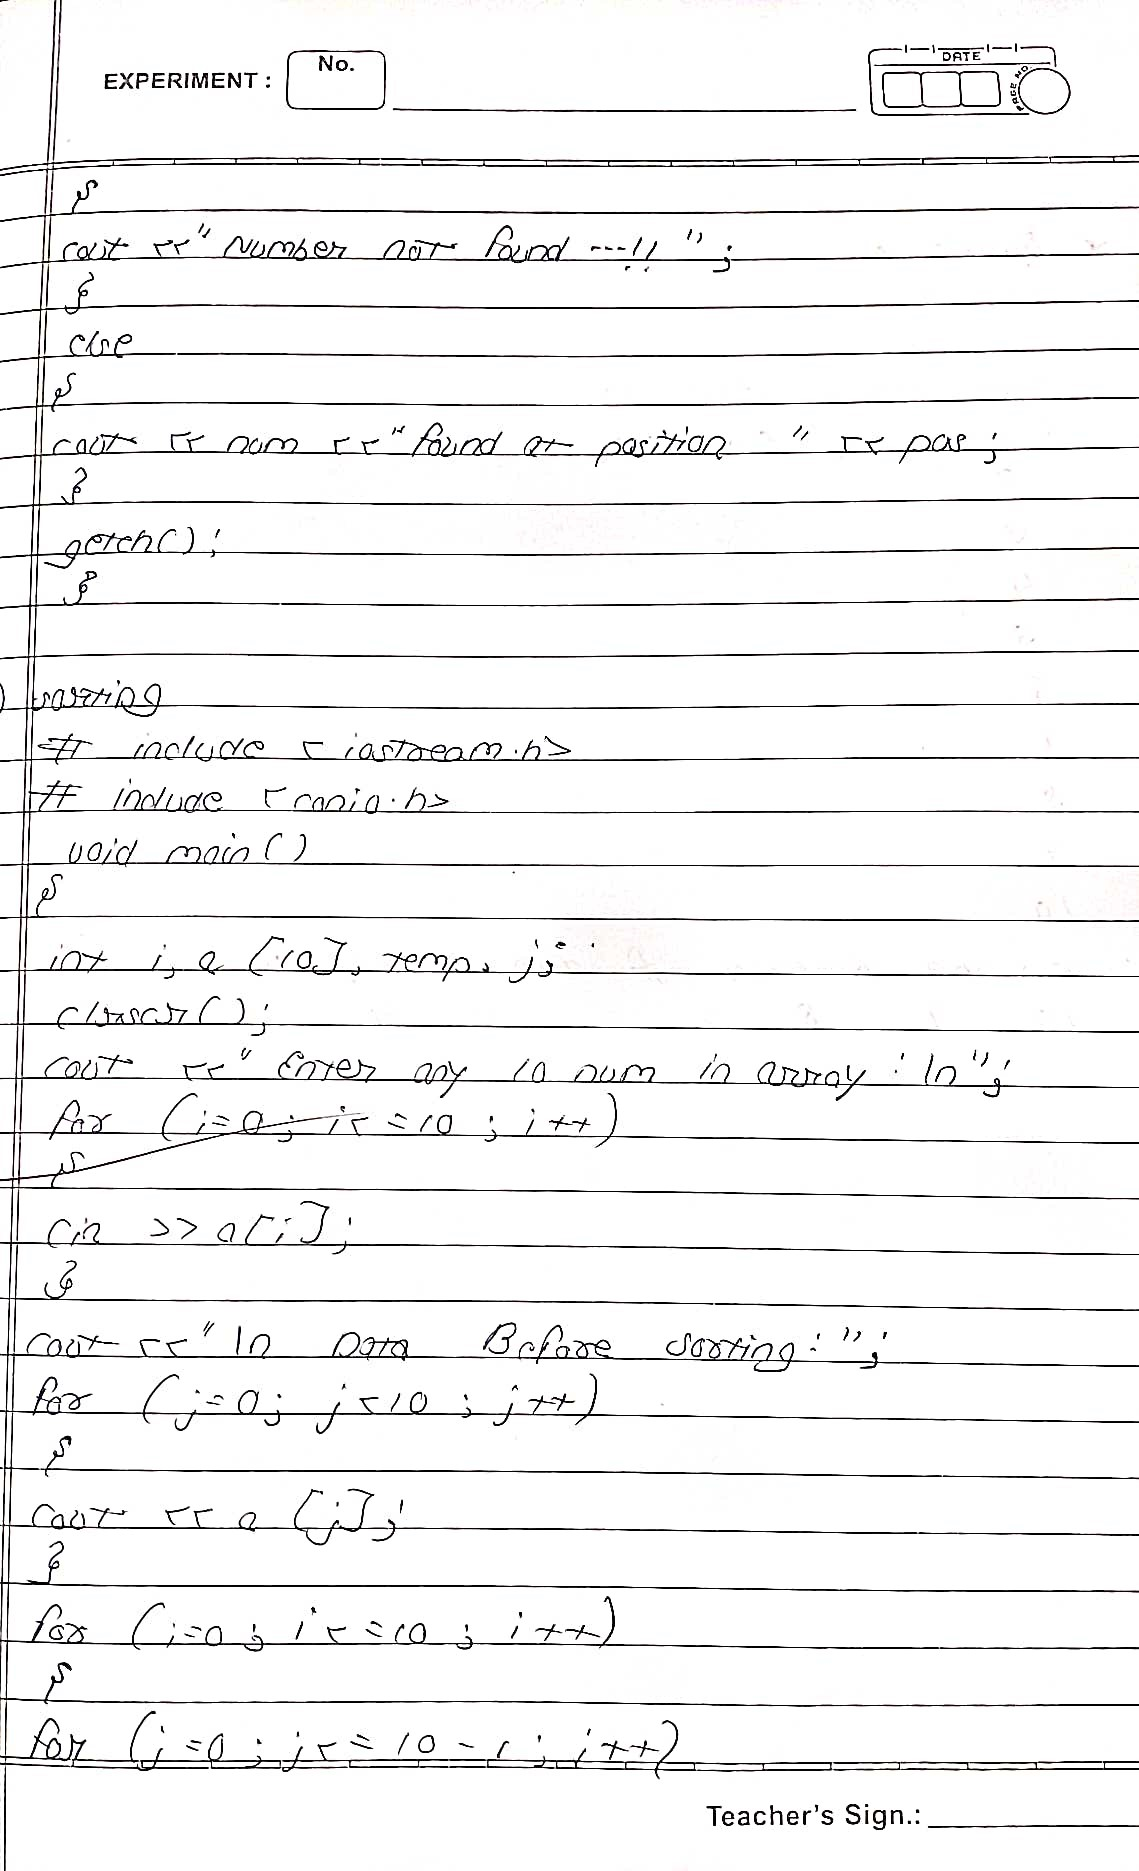 EXPERIMENT : No.
DATE
PAGE NO.
{
cout << " Number not found ---!! " ;
}
else
{
cout << num << " found at position " << pos ;
}
getch() ;
}
) sorting
# include < iostream.h>
# include < conio.h>
void main ( )
{
int i, a [10], temp, j;
clrscr ( ) ;
cout << " Enter any 10 num in array : \n" ;
for ( i=0 ; i< =10 ; i++ )
{
cin >> a[i] ;
}
cout << " \n Data Before sorting : " ;
for ( j=0 ; j<10 ; j++ )
{
cout << a [j] ;
}
for ( i=0 ; i< =10 ; i++ )
{
for ( j=0 ; j< = 10 - 1 ; j++ )
Teacher's Sign.: